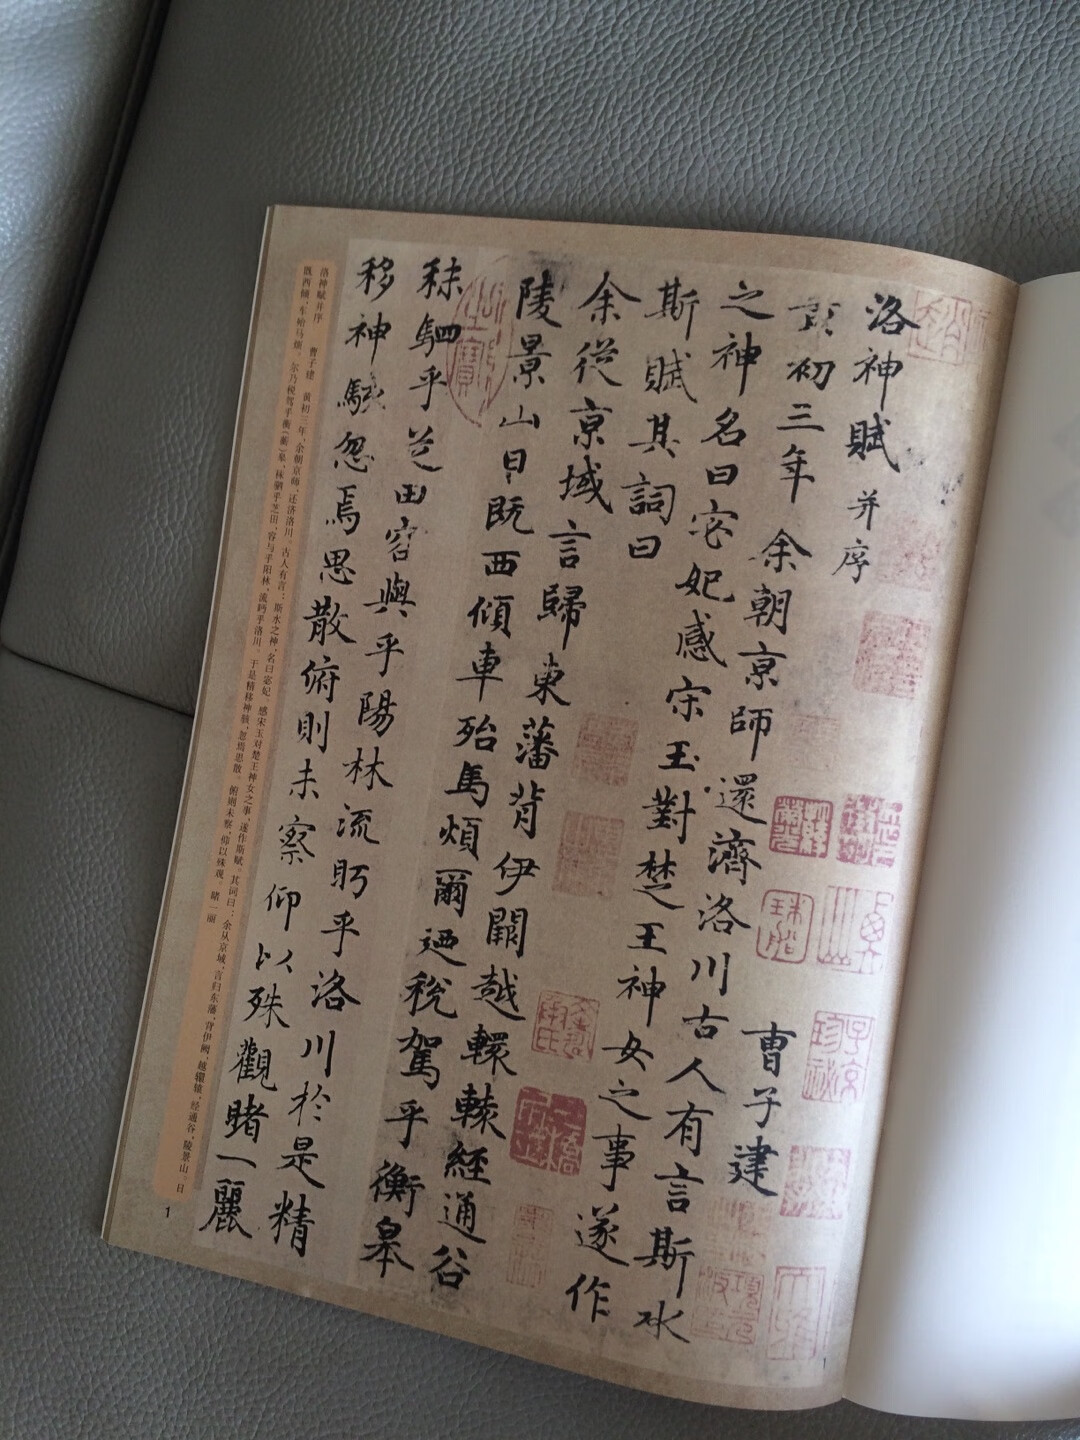 洛神賦 并序 曹子建
黃初三年余朝京師還濟洛川古人有言斯水
之神名曰宓妃感宋玉對楚王神女之事遂作
斯賦其詞曰
余從京域言歸東藩背伊闕越轘轅經通谷
陵景山日既西傾車殆馬煩爾迺稅駕乎衡皋
秣駟乎芝田容與乎陽林流眄乎洛川於是精
移神駭忽焉思散俯則未察仰以殊觀睹一麗
洛神赋并序 曹子建 黄初三年,余朝京师,还济洛川。古人有言:斯水之神,名曰宓妃。感宋玉对楚王神女之事,遂作斯赋。其词曰:余从京域,言归东藩,背伊阙,越轘辕,经通谷,陵景山。日
既西倾,车殆马烦。尔乃税驾乎衡(蘅)皋,秣驷乎芝田,容与乎阳林,流眄乎洛川。于是精移神骇,忽焉思散。俯则未察,仰以殊观。睹一丽
1